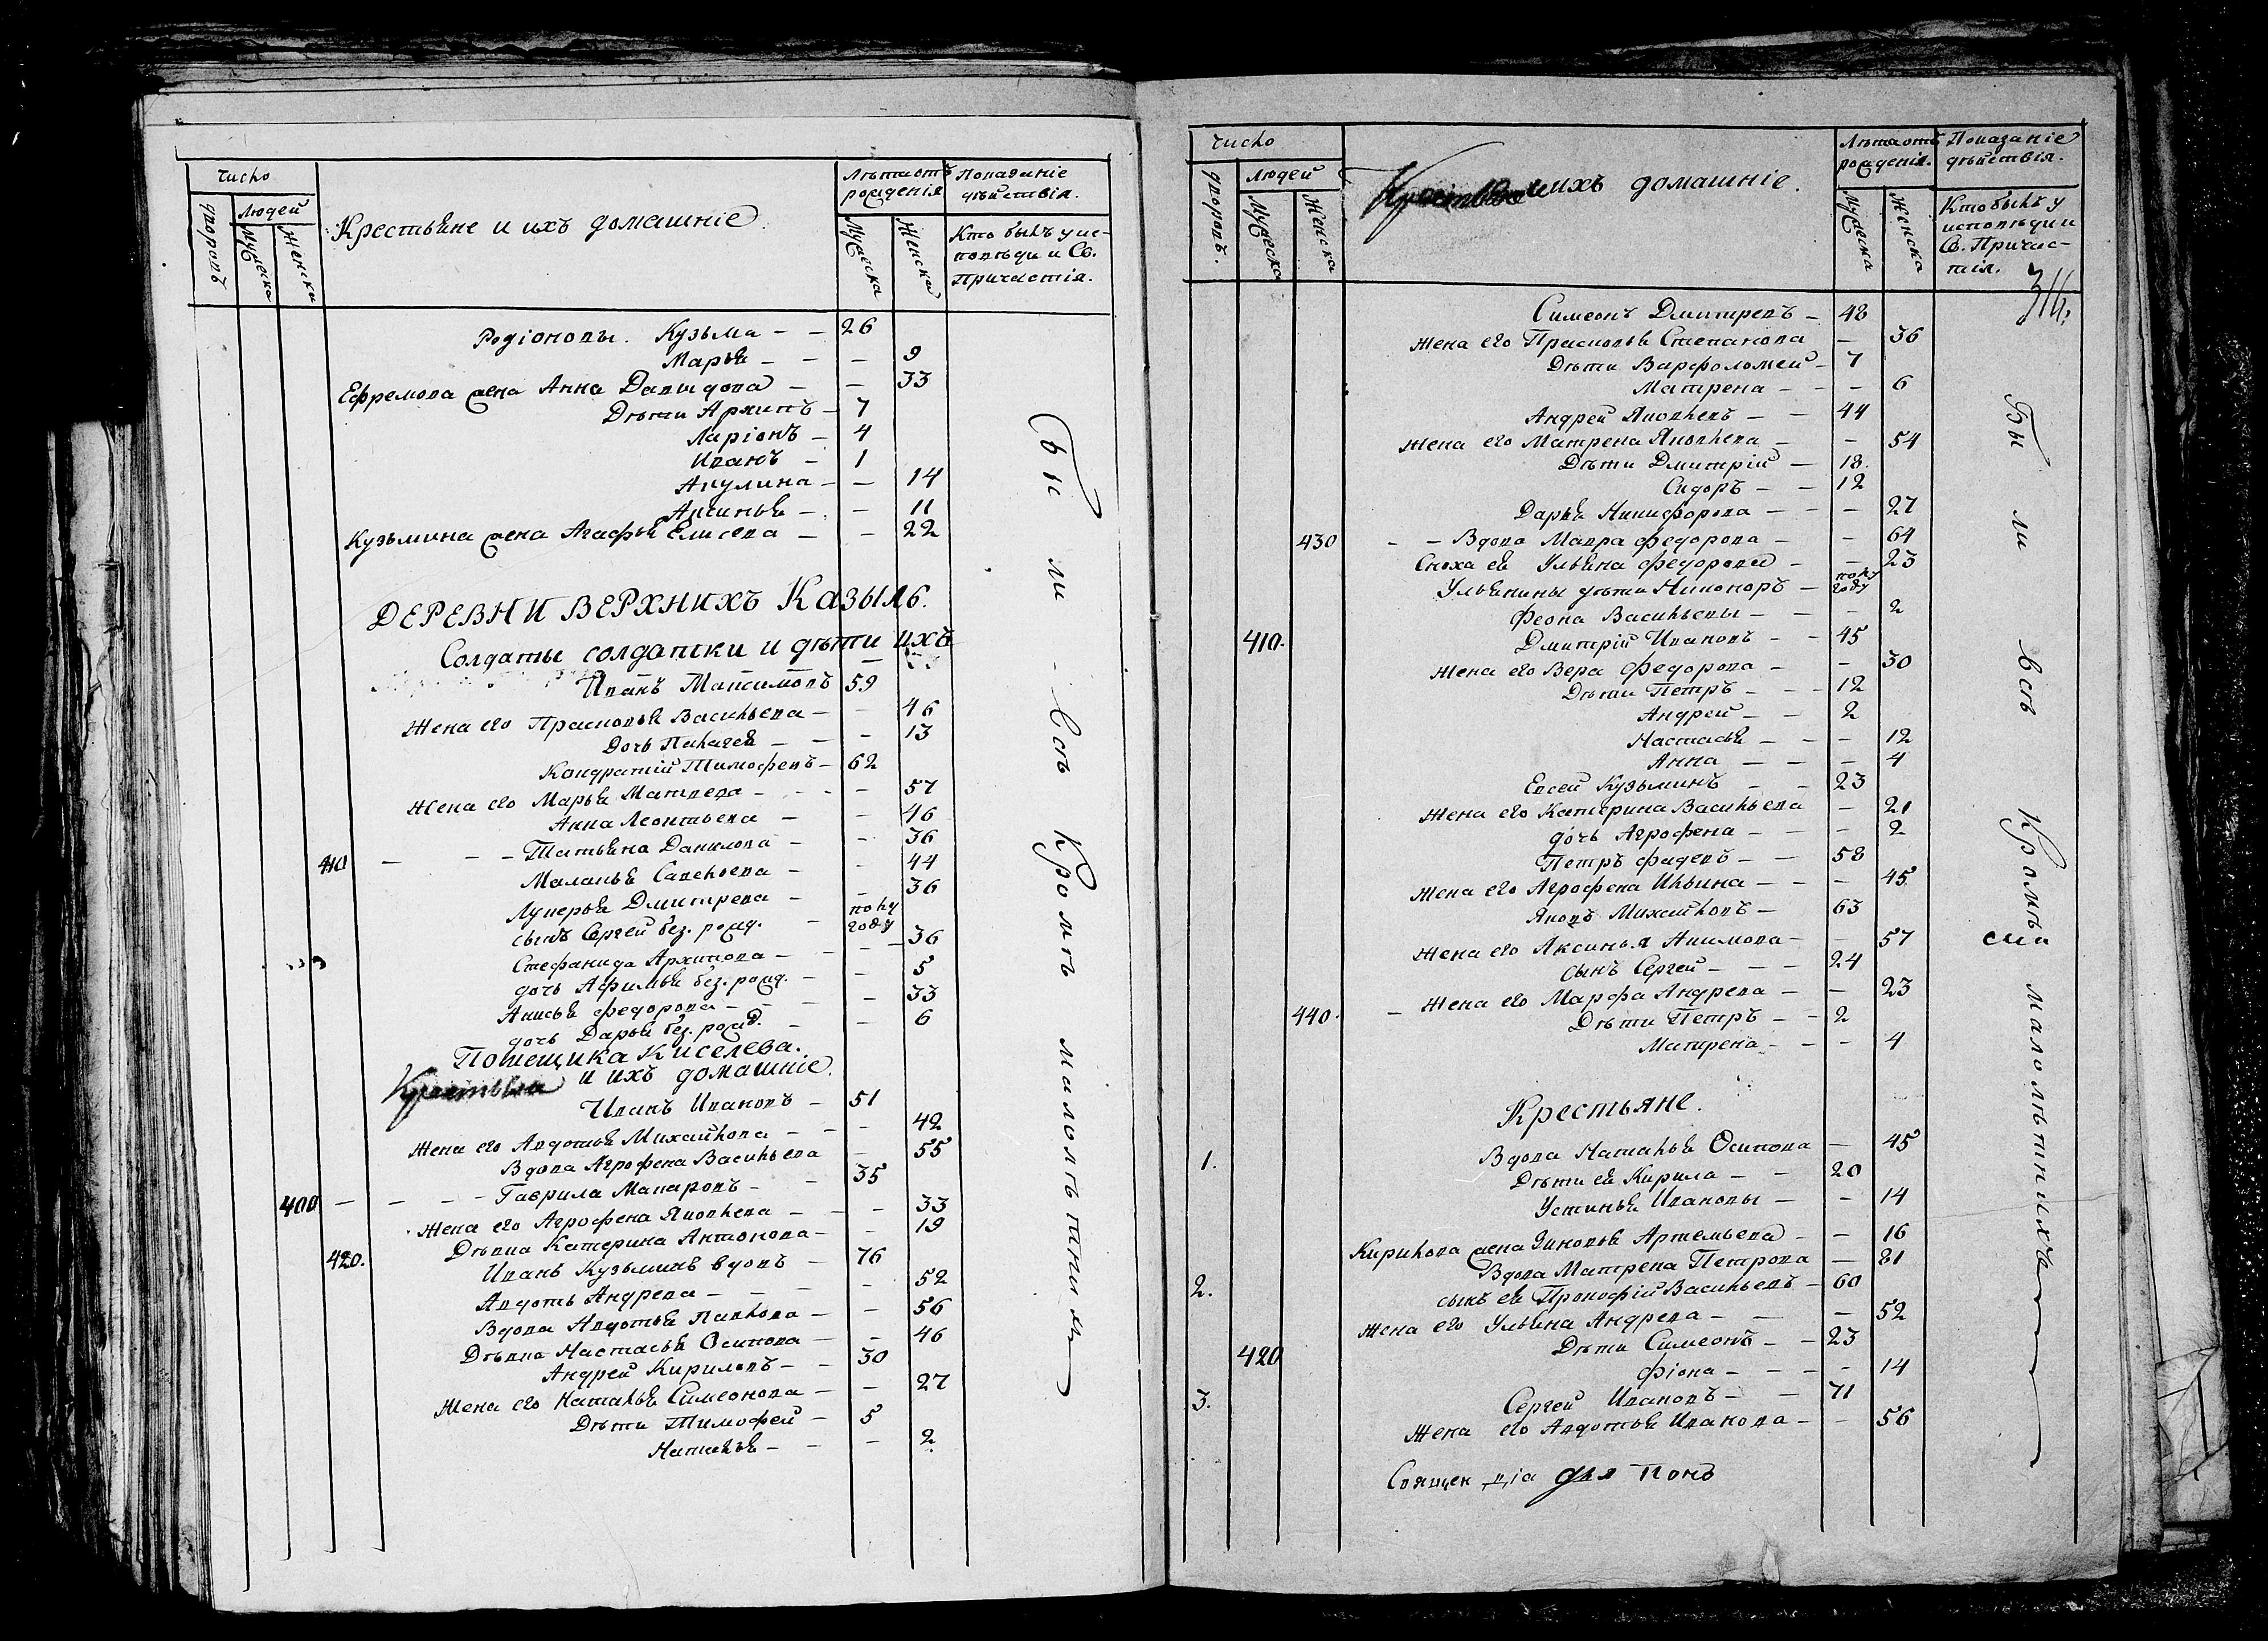 Число
Людей
дворовъ
Мужеска
Женска
Крестьяне и ихъ домашнiе.
Лѣта отъ рожденiя
Мужеска
Женска
Показанiе дѣйствiя.
Кто былъ у ис-
повѣди и Св.
Причастiя.
Родiоновы. Кузьма - - 26
Марья - - - 9
Ефремова жена Анна Давыдова - - 33
Дѣти Архипъ - 7
Ларiонъ - 4
Иванъ - 1
Акулина - - 14
Аксинья - - 11
Кузьмина жена Агафья Елисева - - 22
ДЕРЕВНИ ВЕРХНИХЪ КАЗЫЛЬ.
Солдаты солдатки и дѣти ихъ
Иванъ Матимовъ 59
Жена его Прасковья Васильева - - 46
Дочь Пелагея - - - 13
Кондратiй Тимофевъ - 62
Жена его Марья Матвева - - - 57
Анна Леонтьева - - 46
- - - Татьяна Данилова - - 36
410
Маланья Савельева - - 44
Лукерья Дмитрева - - 36
сынъ Сергей без. рожд. - полу году
Стефанида Архипова - - 36
дочь Афимья без. рожд. - - 5
Анисья Федорова - - - 33
дочь Дарья без. рожд. - - 6
Помещика Киселева.
Крестьяне и ихъ домашнiе.
Иванъ Ивановъ - 51
Жена его Авдотья Михайлова - - - 42
Вдова Агрофена Васильева - 55
400 - - - - Гаврила Макаровъ - - 35
Жена его Агрофена Яковлева - - - 33
Дѣвка Катерина Антонова - - 19
420. Иванъ Кузьминъ вдовъ - 76
Авдоть Андрева - - - - 52
Вдова Авдотья Павлова - - 56
Дѣвка Настасья Осипова - - 46
Андрей Кириловъ - - 30
Жена его Наталья Симеонова - - 27
Дѣти Тимофей - 5
Наталья - - - 2
Бы ли - всѣ Кромѣ малолѣтнихъ
Число
Людей
дворовъ.
Мужеска
Женска
Крестьяне и ихъ домашнiе.
Лѣта отъ рожденiя.
Мужеска
Женска
Показанiе дѣйствiя.
Кто былъ у
исповѣди и
Св. Причас-
тiя.
Симеонъ Дмитревъ - 48
Жена его Прасковья Степанова - 36
Дѣти Варфоломей - 7
Матрена - - - 6
Андрей Яковлевъ - - 44
Жена его Матрена Яковлева - - 54
Дѣти Дмитрiй - 18.
Сидоръ - - 12
Дарья Никифорова - - - 27
430 - - Вдова Мавра Федорова - - 64
Сноха ей Ульяна Федорова - - 23
Ульянины дѣти Никоноръ - полу году
Феона Васильевы - - - 2
410. Дмитрiй Ивановъ - - 45
Жена его Вера Федорова - - 30
Дѣти Петръ - - - 12
Андрей - - 2
Настасья - - - 12
Анна - - - 4
Евсей Кузьминъ - - 23
Жена его Катерина Васильева - 21
дочь Агрофена - - - 2
Петръ Фадевъ - - 58
Жена его Агрофена Ильина - - - 45
Яковъ Михайловъ - 63
Жена его Аксинья Акимова - - 57
сынъ Сергей - - - 24
- Жена его Марфа Андрева - - 23
440. Дѣти Петръ - - 2
Матрена - - - 4
Крестьяне.
1. Вдова Наталья Осипова - 45
Дѣти ей Кирила - - 20
Устинья Ивановы - - 14
Кирилова жена Зиновья Артемьева - - 16
2. Вдова Матрена Петрова - 81
сынъ ей Прокофiй Васильевъ - 60
Жена его Ульяна Андрева - - - 52
Дѣти Симеонъ - - 23
420 Фiона - - - - 14
3. Сергей Ивановъ - - 71
Жена его Авдотья Иванова - - 56
Бы ли всѣ Кромѣ малолѣтнихъ